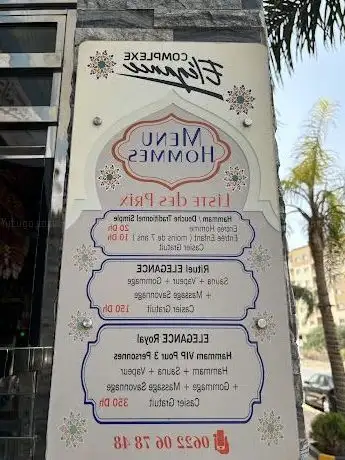 COMPLEXE
Elegance
MENU
HOMMES
LISTE des PRIX
Hammam / Douche Traditionnel Simple
Entrée Homme 20 Dh
Entrée Enfant ( moins de 7 ans ) 10 Dh
Casier Gratuit
Rituel ELEGANCE
Sauna + Vapeur + Gommage
+ Massage Savonnage
Casier Gratuit 150 Dh
ELEGANCE Royal
Hammam VIP Pour 3 Personnes
Hammam + Sauna + Vapeur
+ Gommage + Massage Savonnage
Casier Gratuit 350 Dh
0622 06 78 48